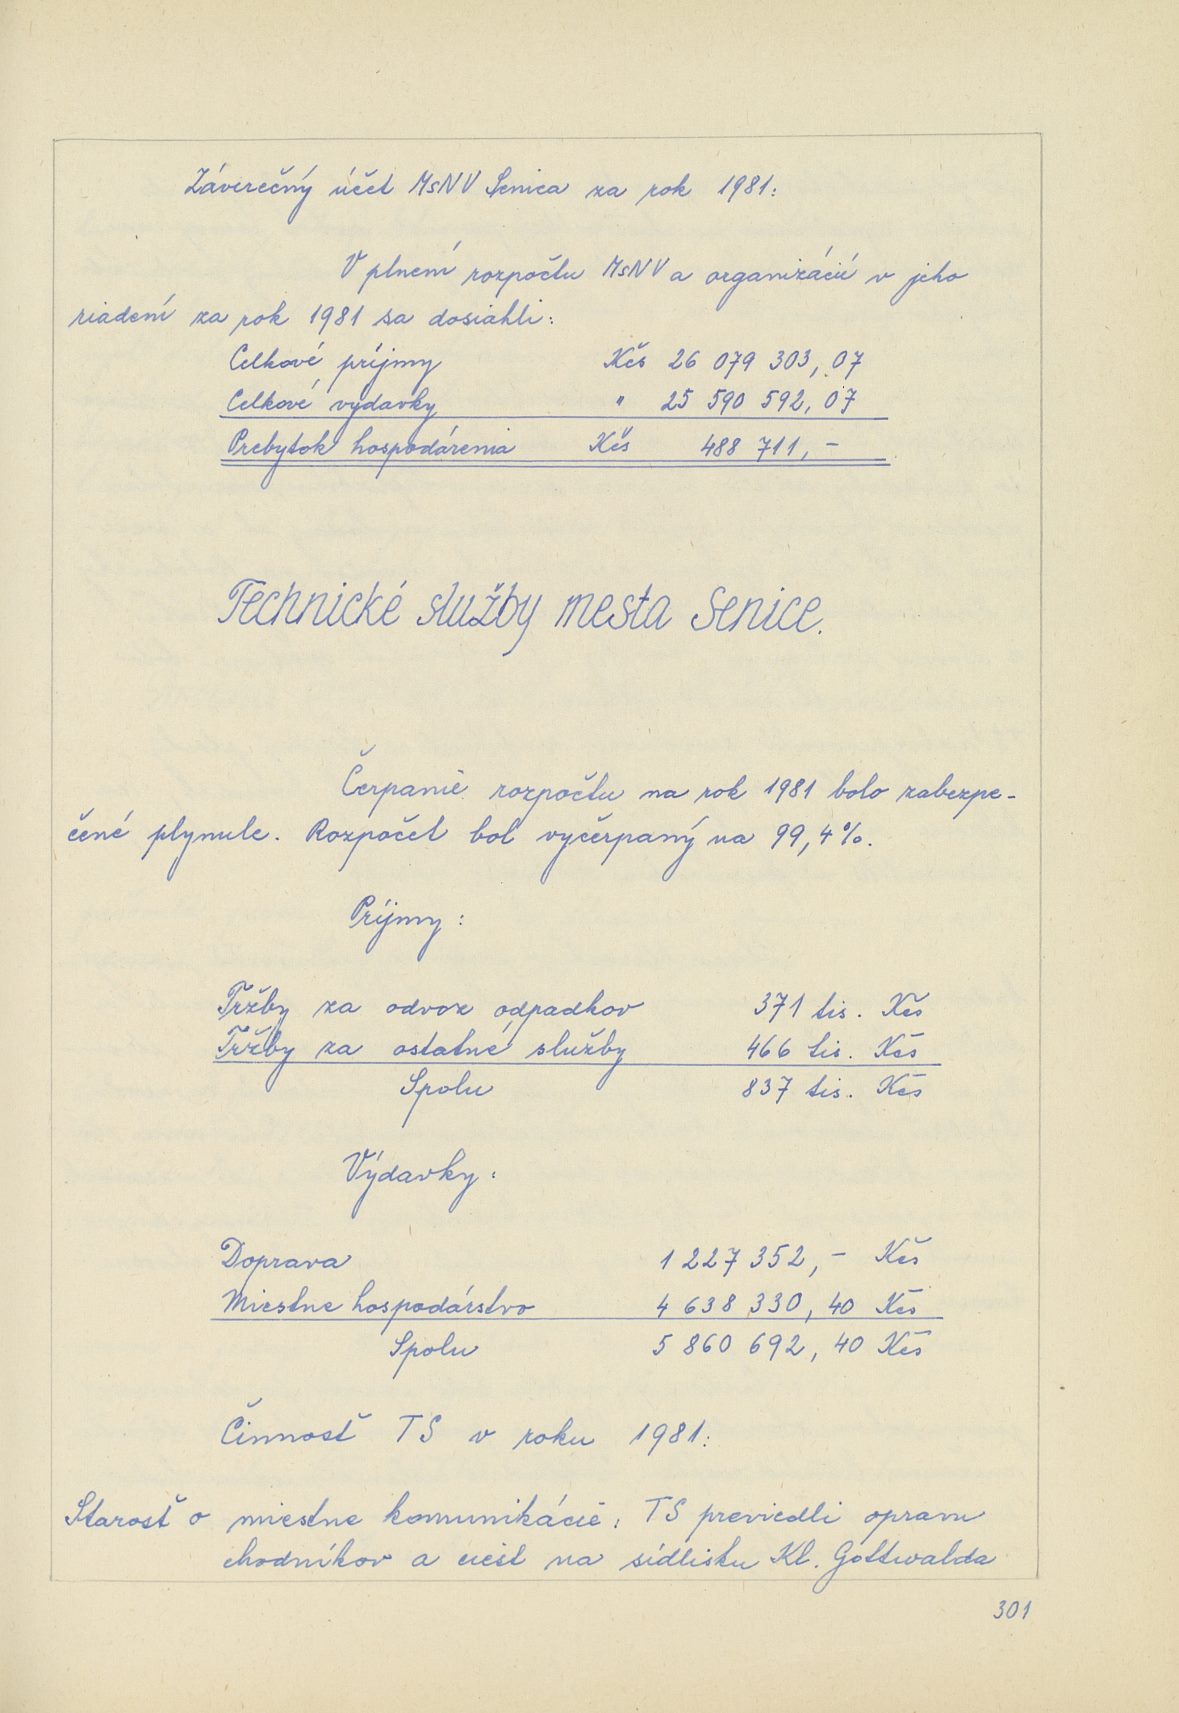 Záverečný účet MsNV Senica za rok 1981:
V plnení rozpočtu MsNV a organizácií v jeho
riadení za rok 1981 sa dosiahli:
Celkové príjmy Kčs 26 079 303,07
Celkové vydavky " 25 590 592,07
Prebytok hospodárenia Kčs 488 711,-
Technické služby mesta Senice.
Čerpanie rozpočtu na rok 1981 bolo zabezpe-
čené plynule. Rozpočet bol vyčerpaný na 99,4%.
Príjmy:
Tržby za odvoz odpadkov 371 tis. Kčs
Tržby za ostatné služby 466 tis. Kčs
Spolu 837 tis. Kčs
Výdavky:
Doprava 1 227 352,- Kčs
Miestne hospodárstvo 4 638 330,40 Kčs
Spolu 5 860 692,40 Kčs
Činnosť TS v roku 1981:
Starosť o miestne komunikácie: TS previedli opravu
chodníkov a ciest na sídlisku Kl. Gottwalda
301